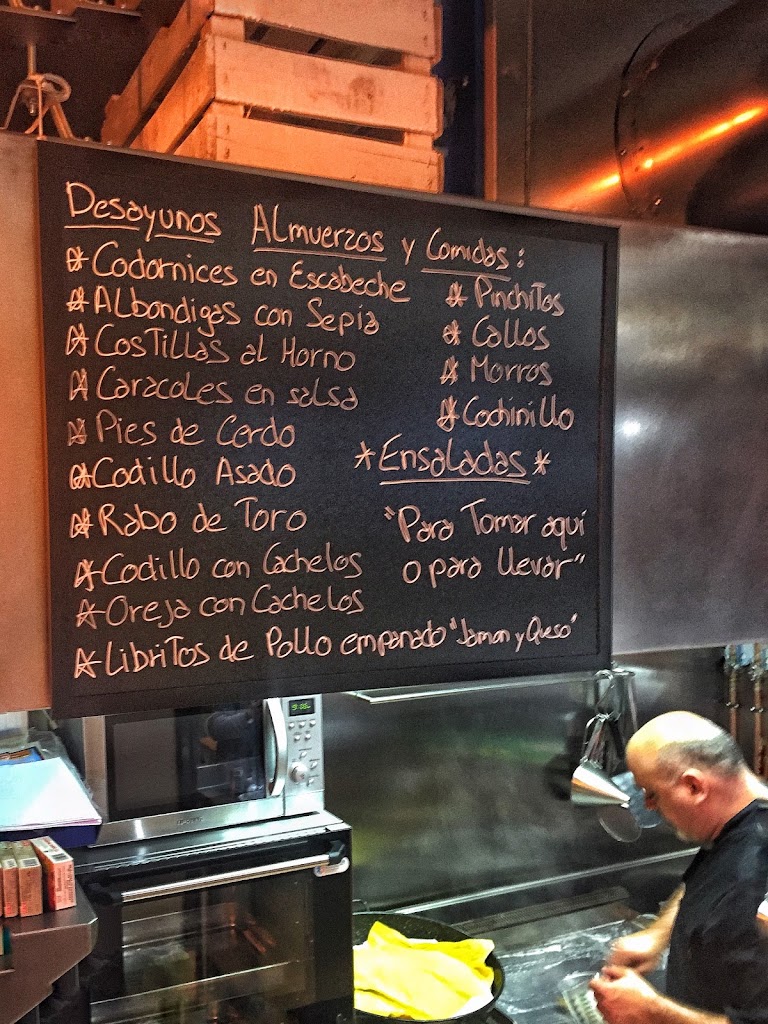 Desayunos Almuerzos y Comidas:
* Codornices en Escabeche
* Albondigas con Sepia
* Costillas al Horno
* Caracoles en salsa
* Pies de Cerdo
* Codillo Asado
* Rabo de Toro
* Codillo con Cachelos
* Oreja con Cachelos
* Libritos de Pollo empanado "Jamon y Queso"
* Pinchitos
* Callos
* Morros
* Cochinillo
* Ensaladas *
"Para Tomar aquí
o para llevar"